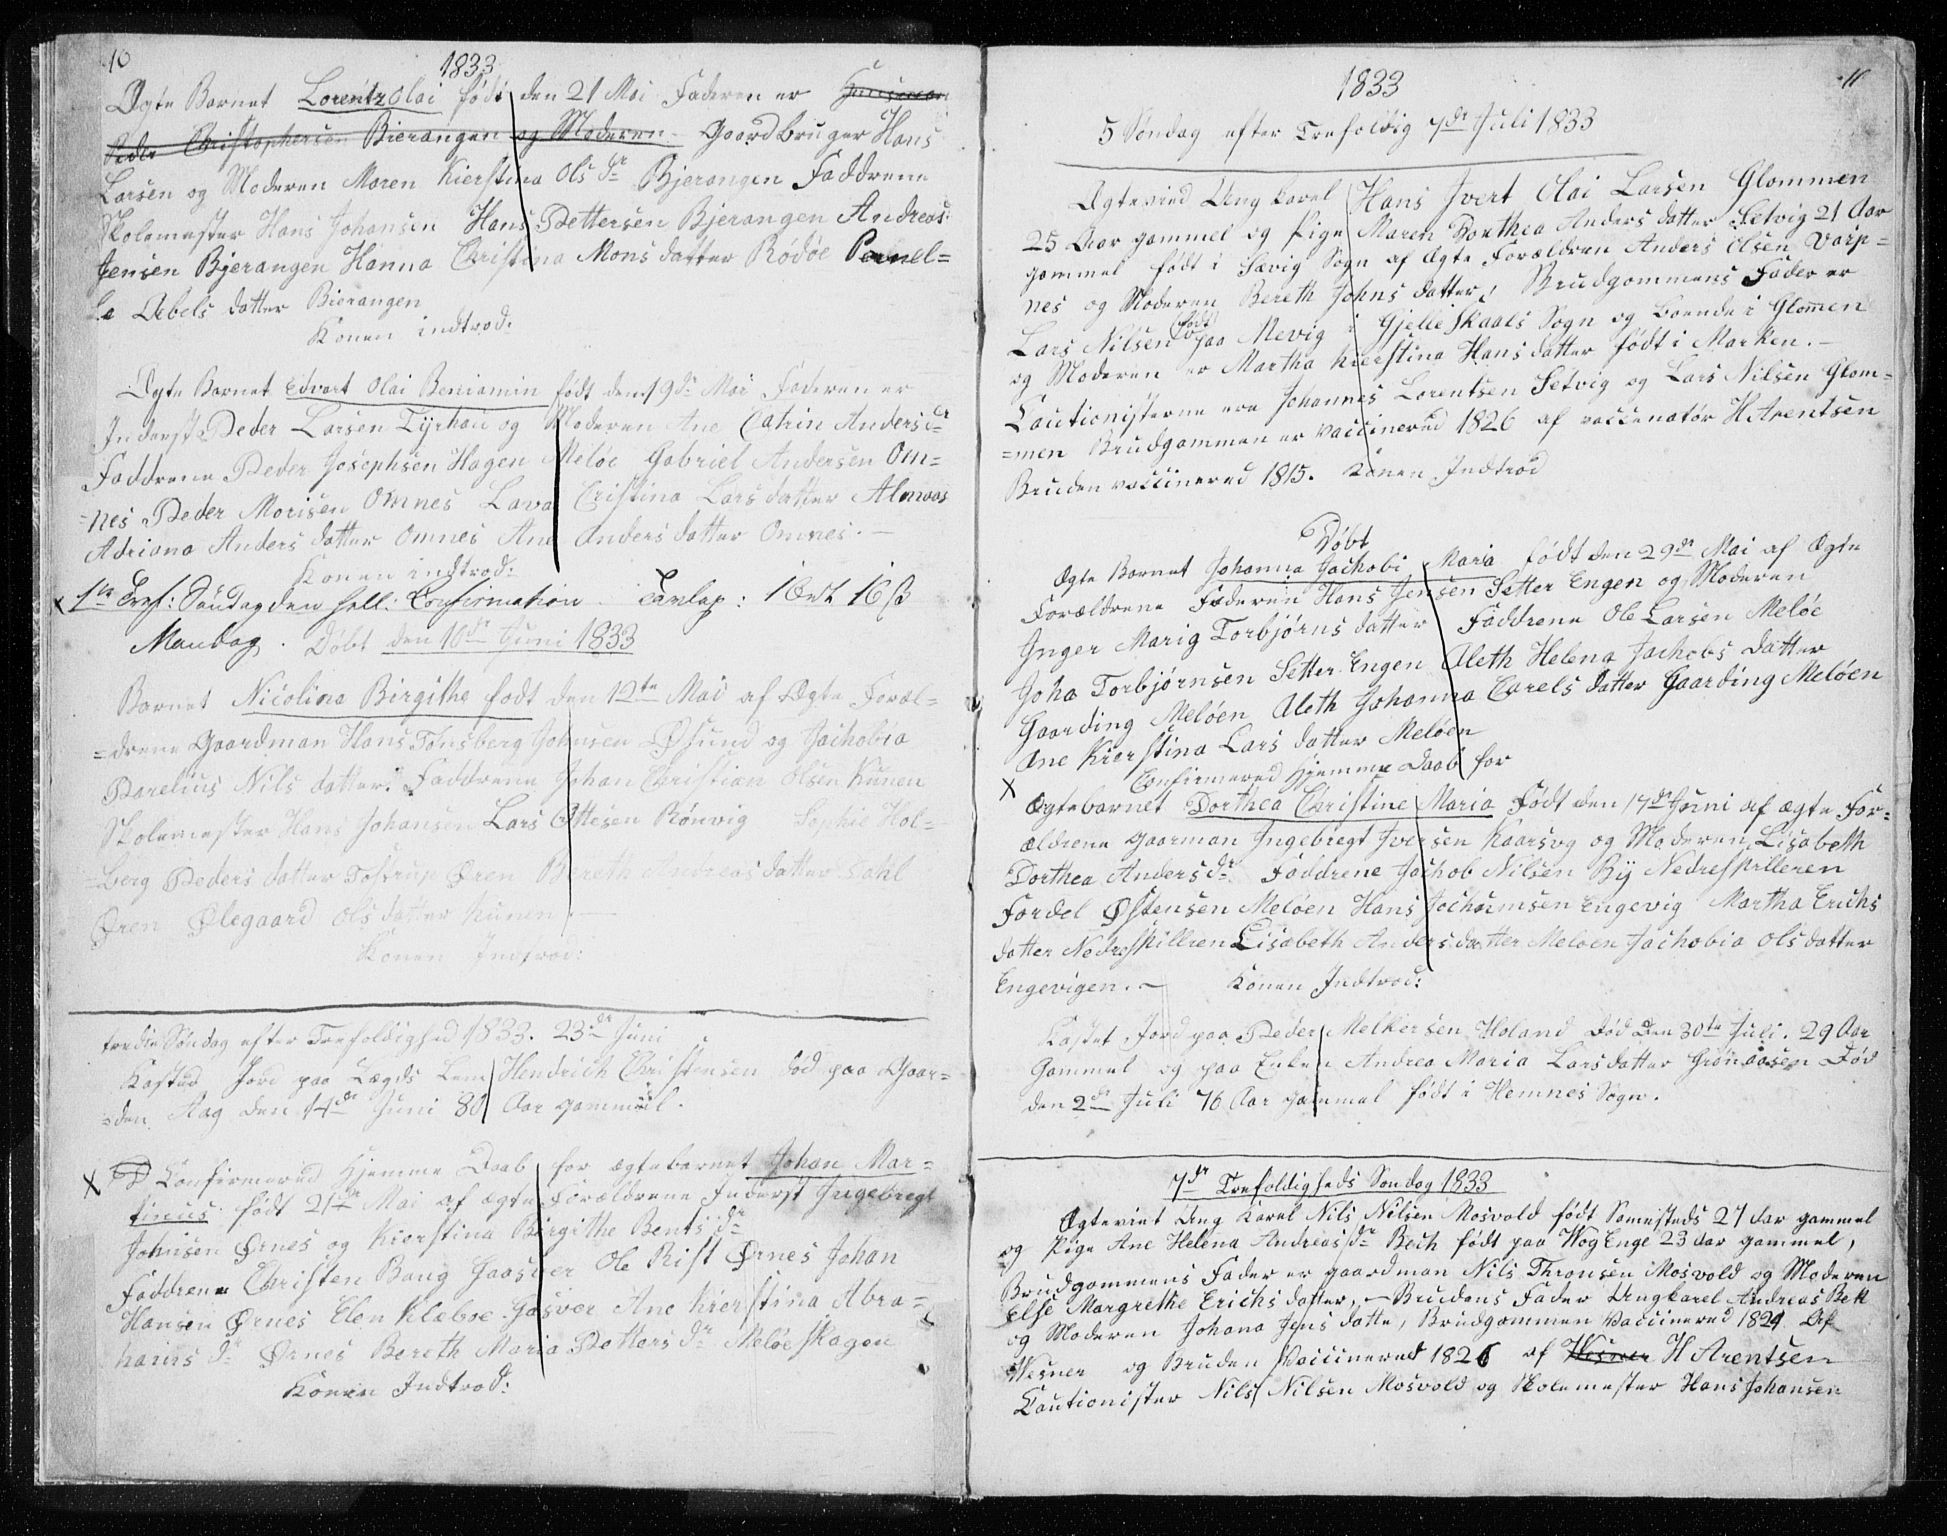 10
1833
Ægte Barnet Lorentz Olai født den 21 Mai Faderen er
Peder Christophersen Bierangen og Moderen Gaardbruger Hans
Larsen og Moderen Maren Kierstina Ols dr Bjerangen Faddrene
Skolemester Hans Johansen Hans Pettersen Bjerangen Andreas
Jensen Bjerangen Hanna Christina Mons datter Rödöe Pernel=
le Abels datter Bierangen
Konen indtrod:
Ægte Barnet Edvart Olai Beniamin født dem 9de Mai Faderen er
Inderst Peder Larsen Tyrhau og Moderen Ane Catrin Anders dr
Faddrene Peder Josephsen Hagen Meløe Gabriel Andersen Om=
=nes Peder Morisen Omnes Lava Cristina Lars datter
Adriana Anders datter Omnes Ane Anders datter Omnes. —
Konen indtrod:
x 1ste Tref: Søndag den hell: Confirmation 1 Ort 16 ß
Mandag. Døbt den 10de Juni 1833
Barnet Nicolina Birgithe født den 12te Mai af Ægte Foræl=
=drene Gaardman Hans Tønsberg Johnsen Øsund og Jachobia
Parelius Nils datter. Faddrene Johan Christian Olsen Kunen
Skolemester Hans Johansen Lars Ottesen Rönvig Sophie Hol=
=berg Peders datter Øren Bereth Andreas datter Dahl
Øren Ølegaard Ols datter Kunen. —
Konen Indtrod:
tredie Søndag efter Trefoldighed 1833. 23de Juni
Kasted Jord paa Lægds Lem Hendrich Christensen død paa Gaar=
=den Aag den 14de Juni 80 Aar gammel.
x Confirmered Hjemme Daab for ægtebarnet Johan Mar=
tinus født 21de Mai af ægte Forældrene Inderst Ingebregt
Johnsen Ørnes og Kierstina Birgithe Bents dr
Faddrene Christen Bang Ole Rist Ørnes Johan
Hansen Ørnes Elen Klæboe Ane Kierstina Abra=
hams dr Ørnes Bereth Maria Petters dr Meløe Skagen
Konen Indtrod:
11
1833
5 Søndag efter Trefoldig 7de Juli 1833
Ægtevied Ung karel Hans Ivert Olai Larsen Glommen
25 Aar gammel og Pige Maren Dorthea Anders datter Setvig 21 Aar
gammel født i Sævig Sogn af Ægte Forældren Anders Olsen Varp=
nes og Moderen Bereth Johns datter, Brudgommens Fader er
Lars Nilsen (født) paa Mevig i Gjelleskaals Sogn og boende i Glommen
og Moderen er Martha Kierstina Hans datter født i Marken. —
Cautionisterne ere Johannes Lorentsen Setvig og Lars Nilsen Glom=
=men Brudgommen er vaccinered 1826 af vaccenatør H Arentsen
Bruden vaccinered 1815. Konen Indtrod
Døbt
Ægte Barnet Johanna Jachobi Maria født den 29de Mai af Ægte
Forældrene Faderen Hans Jensen Setter Engen og Moderen
Inger Marig Torbjørns datter Faddrene Ole Larsen Meløe
Joha Torbjørnsen Setter Engen Aleth Helena Jachobs datter
Gaarding Meløen Aleth Johanna Carels datter Gaarding Meløen
Ane Kierstina Lars datter Meløen
Confirmered Hjemme Daab for
x Ægtebarnet Dorthea Christine Maria Født den 17de Juni af ægte For=
ældrene Gaarman Ingebregt Iversen Kaarsvg og Moderen Lisabeth
Dorthea Anders dr. Faddrene Jachob Nilsen By Nedreskilleren
Fordel Østensen Meløen Hans Jochumsen Engevig Martha Erichs
datter Nedreskillren Lisabeth Anders datter Meløen Jachobia Ols datter
Engevigen. — Konen Indtrod:
Kastet Jord paa Peder Melkersen Holand Død den 30te Juli. 29 Aar
Gammel og paa Enken Andrea Maria Lars datter Grønaasen Død
den 2de Juli 76 Aar gammel født i Hemnes Sogn.
7de Trefoldigheds Søndag 1833
Ægteviet Ung karel Nils Nilsen Mosvold født Samesteds 27 Aar gammel
og Pige Ane Helena Andreas dr Bech født paa Wog Enge 23 aar gammel,
Brudgommens Fader er gaardman Nils Thronsen Mosvold og Moderen
Else Margrethe Erichs datter, — Brudens Fader Ungkarel Andreas Bek
og Moderen Johana Jens datte, Brudgommen Vaccinered 1824 Af
Wesner og Bruden Vaccinered 1826 af Wesner H Arentsen
Cautionister Nils Nilsen Mosvold og Skolemester Hans Johansen